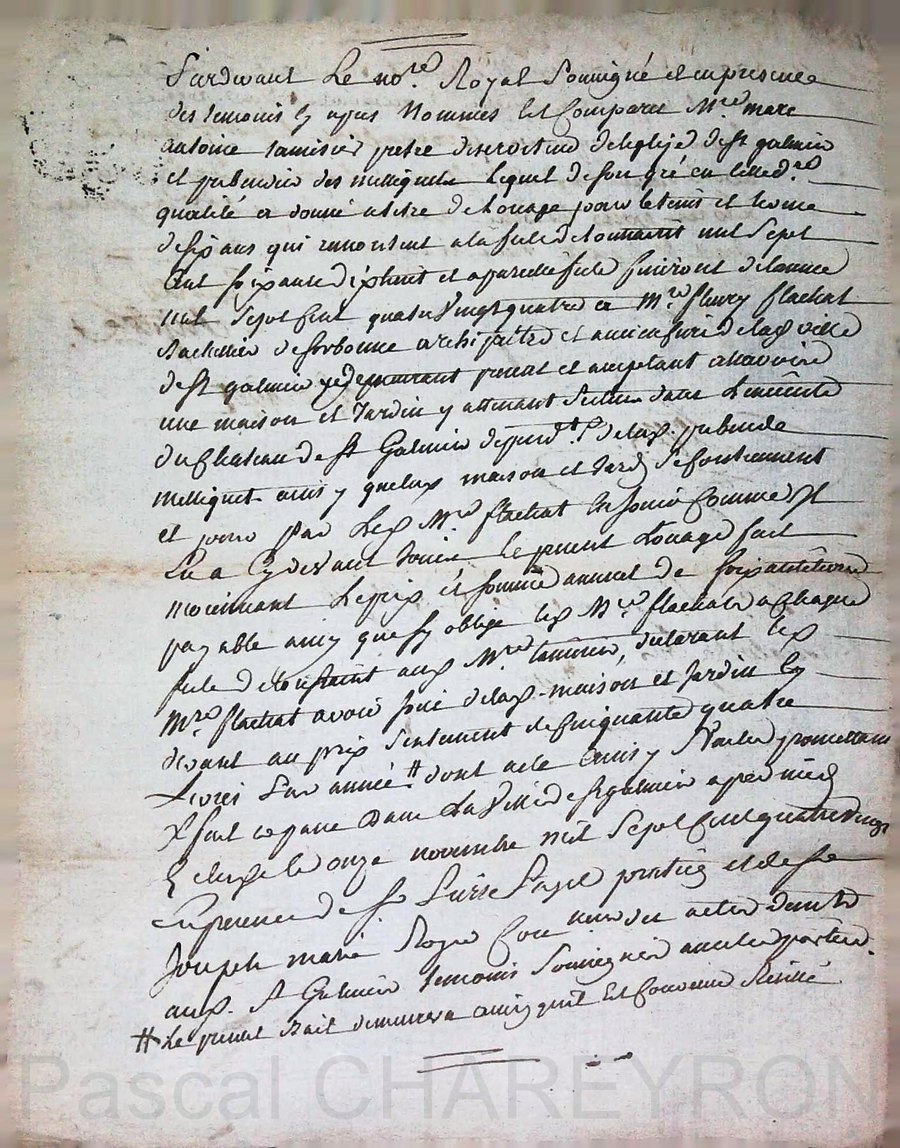 Pardevant Le no.re Royal Soussigné et en presence
des temoins cy apres Nommés Est Comparu M.re marc
antoine tamisier pretre de l'eglise de St galmier
et prebendier des milliquets Lequel de son gré en lad.
qualité a donné a titre de Louage pour le tems et terme
de six ans qui a la fete de toussaint mil Sept
Cent soixante dixhuit et a pareille fete finiront de l'année
mil Sept Cent quatre Vingt quatre a M.re fleury flachat
Bachelier de sorbonne archiprêtre et curé de lad ville
de St galmier y demeurant present et acceptant
une maison et Jardin y attenant Situés dans L'enceinte
du Chateau de St Galmier dependt de lad. prebende
milliquet ainsi que lad maison et Jardin Se
et jouir Par Led M.re flachat en jouir Comme Il
En a Cy devant Joui le present Louage fait
moiennant Le prix et somme annuel de soixante
payable ainsy que s'y oblige led M.re flachat a Chaque
fete de toussaint aud M.re tamisier, declarant led
M.re flachat avoir joui de lad. maison et Jardin Cy
devant au prix Seulement de Cinquante quatre
Livres Par année # dont acte Ainsy promettant
fait et passé Dans La Ville de St galmier
le onze novembre mil Sept Cent quatre Vingt
En presence de Sr
Joseph marie des actes
aud. St Galmier temoins Soussignés avec les parties
# Le present Bail demeurera ainsy quil Est Convenu Resilié
Pascal CHAREYRON